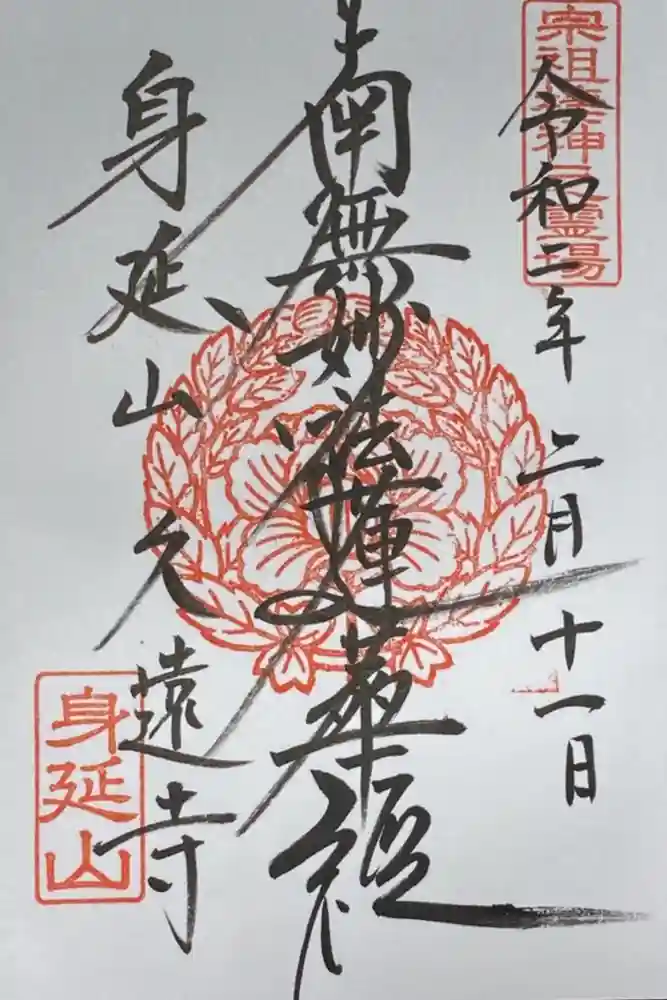 宗祖棲神之霊場
令和二年 二月 十一日
南無妙法蓮華経
身延山久遠寺
身延山